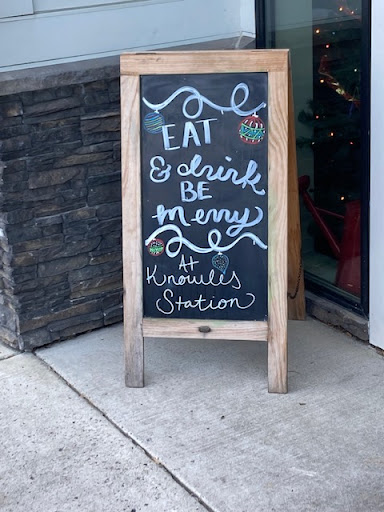 EAT
& drink
BE
merry
At
Knowles
Station